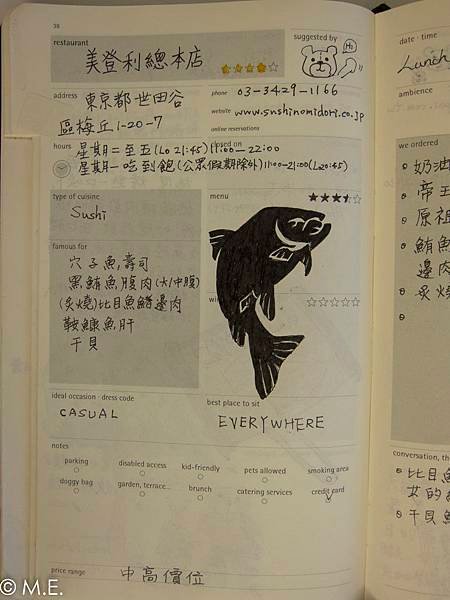 38
restaurant
美登利總本店
suggested by
Hi
address
東京都世田谷
區梅丘1-20-7
phone 03-3429-1166
website www.sushinomidori.co.jp
online reservations
hours 星期二至五(Lo 21:45) 11:00-22:00
星期一吃到飽(公眾假期除外)11:00-21:00(Lo20:45)
type of cuisine
Sushi
menu
famous for
穴子魚,壽司
黑鮪魚腹肉(大/中腹)
(炙燒)比目魚鰭邊肉
鮟鱇魚肝
干貝
ideal occasion · dress code
CASUAL
best place to sit
EVERYWHERE
notes
parking
disabled access
kid-friendly
pets allowed
smoking area
doggy bag
garden, terrace...
brunch
catering services
credit card
price range
中高價位
date · time
Lunch
ambience
we ordered
奶油
帝王
原祖
鮪魚
邊肉
炙燒
conversation, th
比目魚
女的
干貝魚
© M.E.